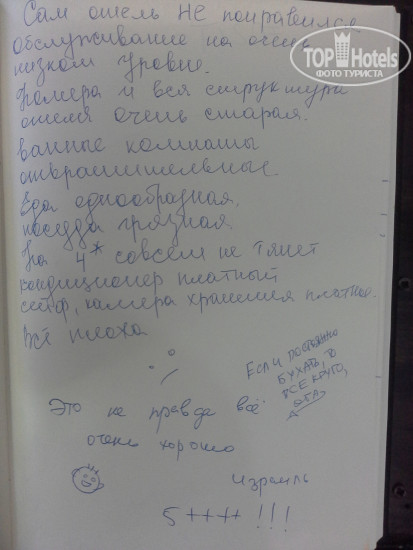 Сам отель не понравился
обслуживание на очень
низком уровне.
Номера и вся структура
отеля очень старая.
ванные комнаты
отвратительные.
Еда однообразная,
посуда грязная.
На 4* совсем не тянет
кондиционер платный
сейф, камера хранения платное.
всё плохо
Если постоянно
бухать, то
все круто,
Это не правда всё
очень хорошо
Израиль
5 ++++ !!!
TOPHotels
ФОТО ТУРИСТА